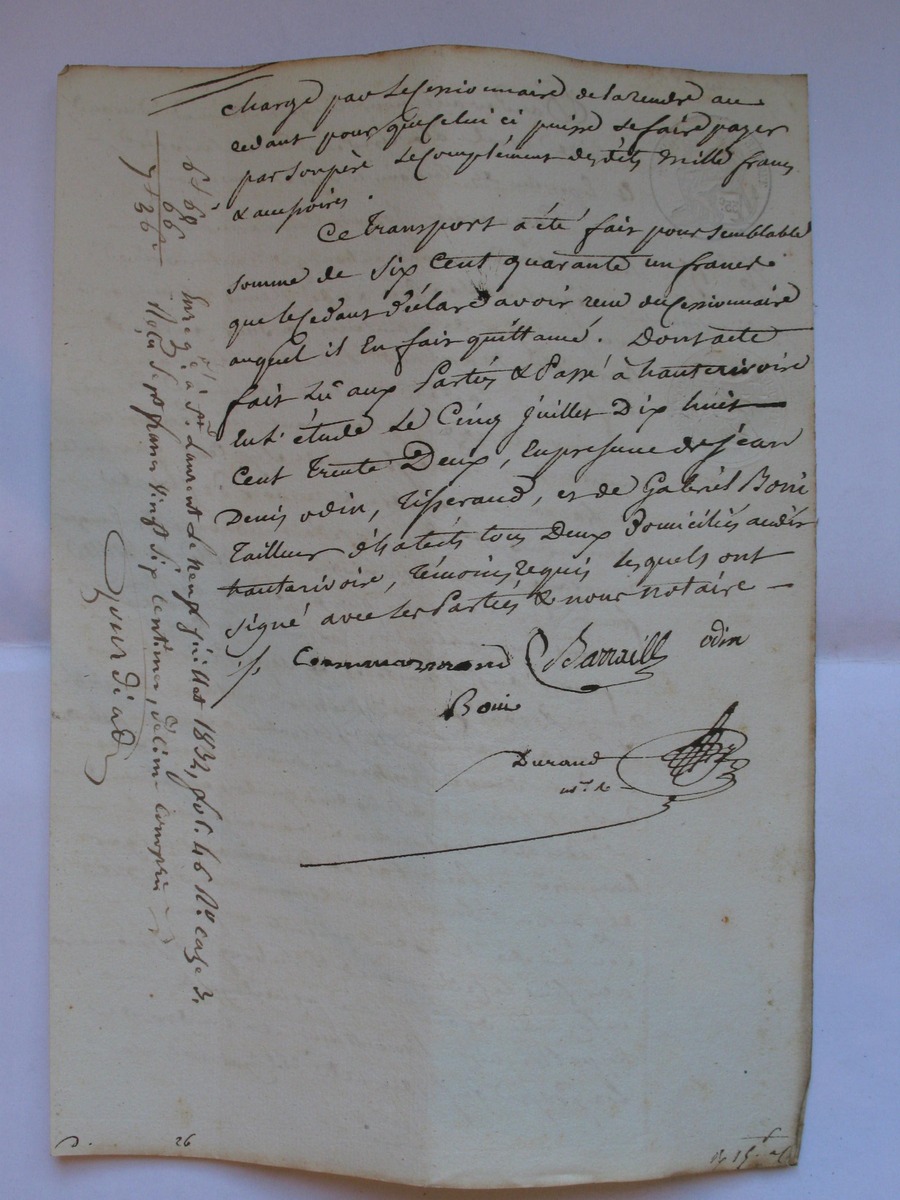 chargé par le Cessionnaire de la rendre au
cedant pour que Celui ci puisse Se faire payer
par Son père le Complément des dits mille francs
& accessoires.
Ce Transport a été fait pour Semblable
Somme de Six Cent quarante un francs
que le Cedant déclare avoir reçu du Cessionnaire
auquel il En fait quittance. Dont acte
fait Lû aux Parties & Passé à hauterivoire
En l'étude Le Cinq juillet Dix huit
Cent Trente Deux, En presence de Jean
Denis odin, Tisserand, et de Gabriel Boni
Tailleur d'habits tous Deux Domiciliés audit
hauterivoire, Témoins requis lesquels ont
signé avec les Parties & nous notaire —
Commarmond Barraill odin
Boni
Durand
nre
6 f 60
66
7 f 26
Enregé à St. Laurent le neuf juillet 1832, fol. 46 Ro. case 3.
Reçu Sept francs vingt six centimes, décime compris
Gourdiad
D.
26